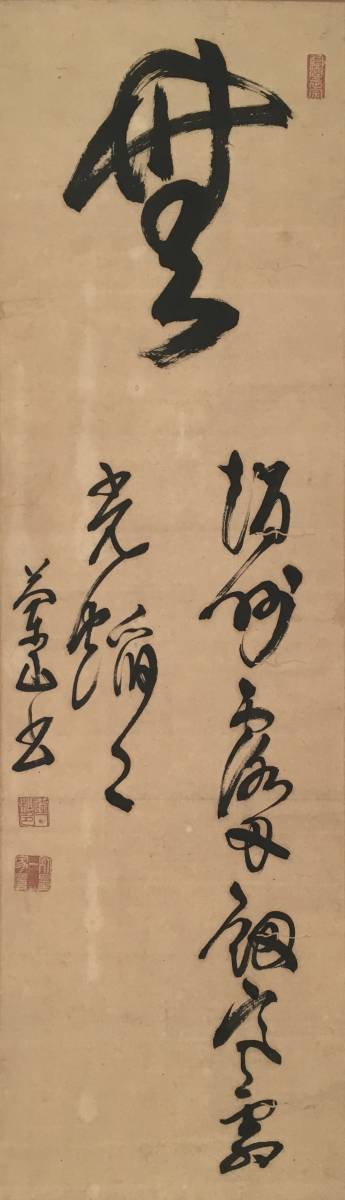 無
趙州露刃劔寒霜
光焔々
蘭山書